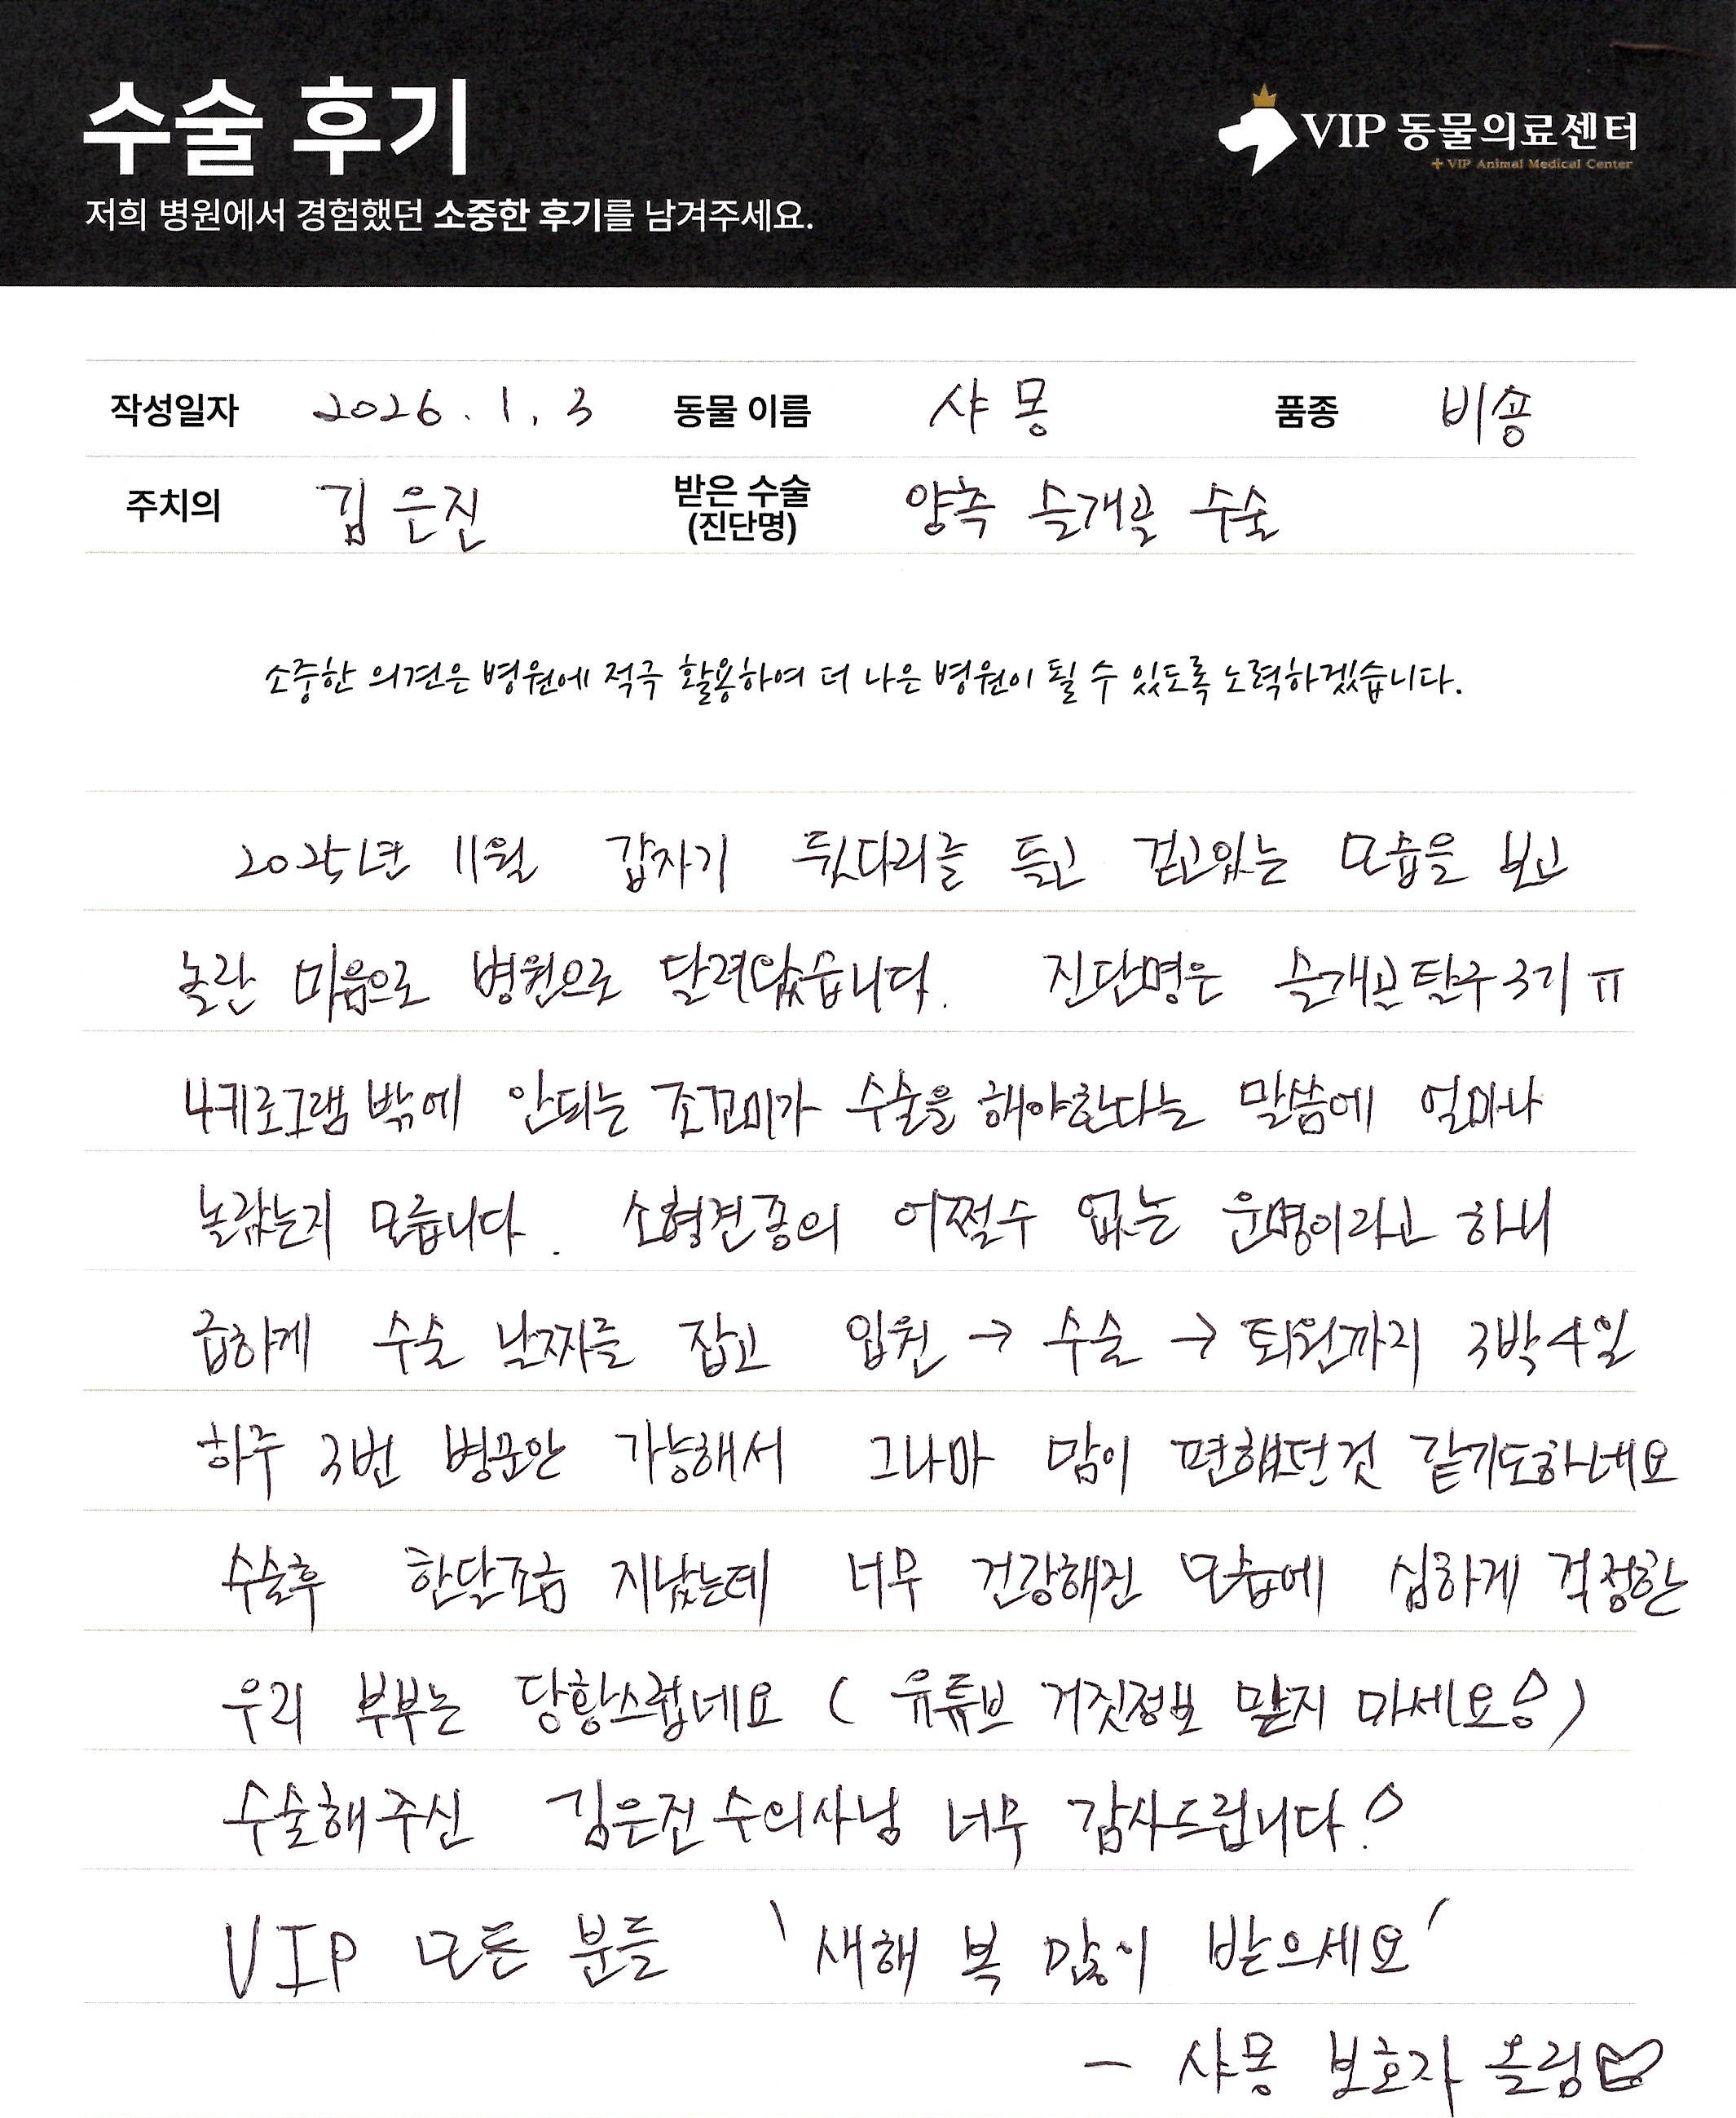 수술 후기
VIP 동물의료센터
+ VIP Animal Medical Center
저희 병원에서 경험했던 소중한 후기를 남겨주세요.
작성일자 2026. 1. 3 동물 이름 샤몽 품종 비숑
주치의 김은진 받은 수술 (진단명) 양측 슬개골 수술
소중한 의견은 병원에 적극 활용하여 더 나은 병원이 될 수 있도록 노력하겠습니다.
2025년 11월 갑자기 뒷다리를 들고 걷고있는 모습을 보고
놀란 마음으로 병원으로 달려왔습니다. 진단명은 슬개골탈구 3기 ㅠ
4키로그램 밖에 안되는 조꼬미가 수술을 해야한다는 말씀에 얼마나
놀랐는지 모릅니다. 소형견종의 어쩔수 없는 운명이라고 하니
급하게 수술 날짜를 잡고 입원 → 수술 → 퇴원까지 3박4일
하루 3번 병문안 가능해서 그나마 맘이 편했던것 같기도하네요
수술후 한달조금 지났는데 너무 건강해진 모습에 심하게 걱정한
우리 부부는 당황스럽네요 ( 유튜브 거짓정보 믿지 마세요!)
수술해주신 김은진 수의사님 너무 감사드립니다!
VIP 모든 분들 '새해 복 많이 받으세요'
- 샤몽 보호자 올림♡